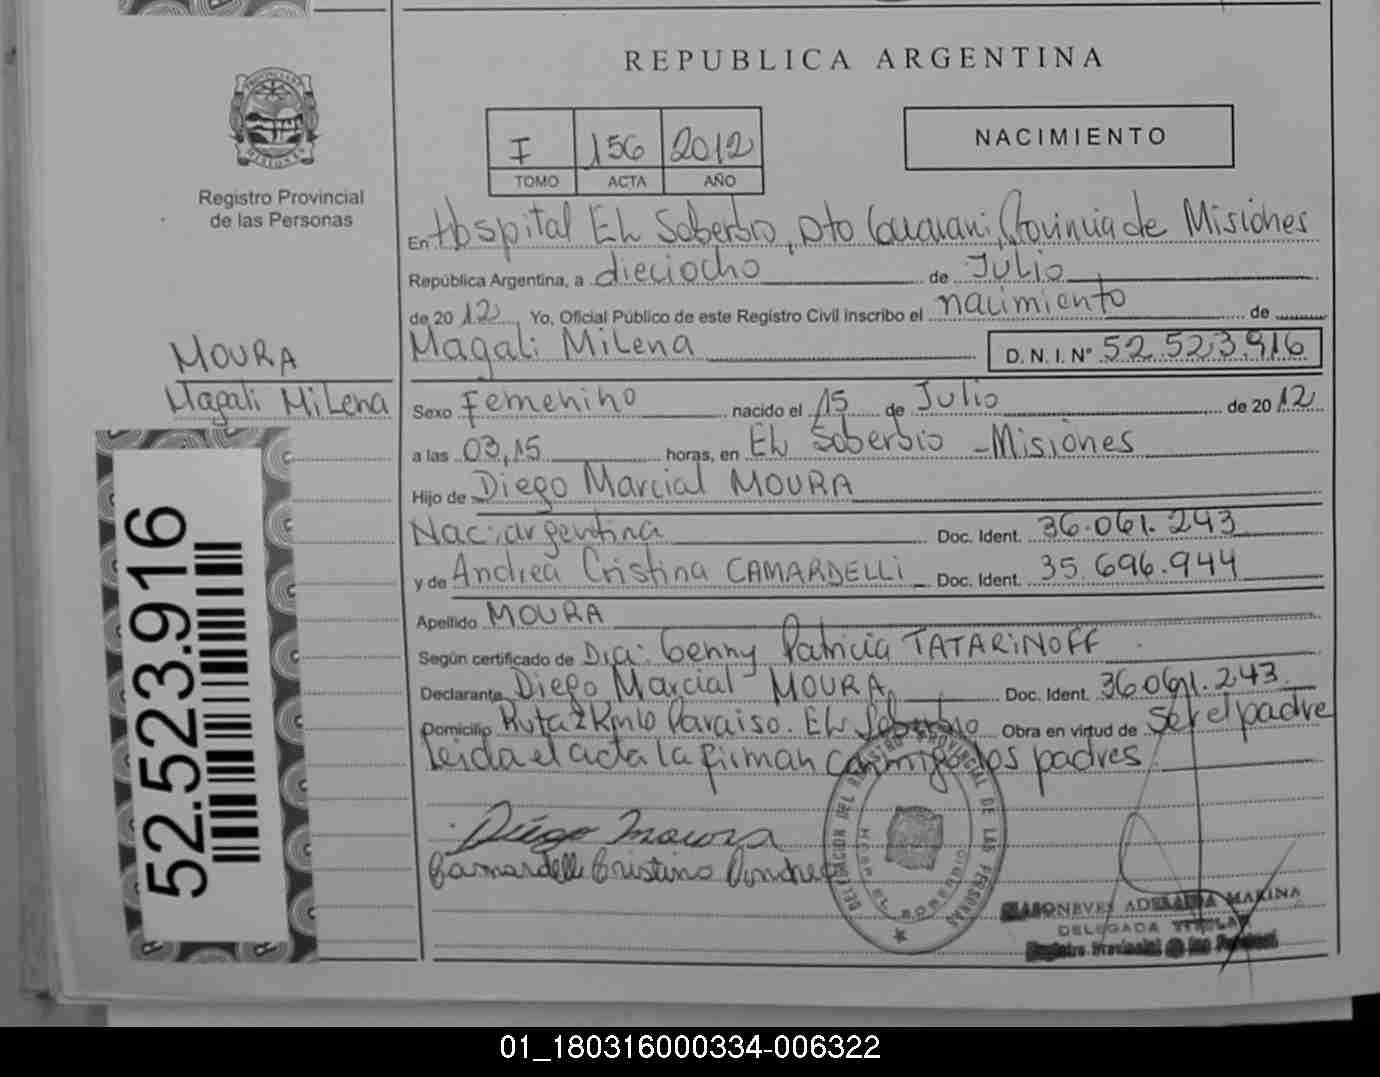 REPUBLICA ARGENTINA
PROVINCIA DE
MISIONES
Registro Provincial
de las Personas
I 156 2012
TOMO ACTA AÑO
NACIMIENTO
En Hospital El Soberbio, Dto Guarani, Provincia de Misiones
República Argentina, a dieciocho de Julio
de 2012 Yo, Oficial Público de este Registro Civil inscribo el nacimiento de
Magali Milena D.N.I. Nº 52.523.916
MOURA
Magali Milena
Sexo Femenino nacido el 15 de Julio de 2012
a las 03,15 horas, en El Soberbio - Misiones
Hijo de Diego Marcial MOURA
Nac: argentina Doc. Ident. 36.061.243
y de Andrea Cristina CAMARDELLI Doc. Ident. 35.696.944
Apellido MOURA
Según certificado de Dra: Genny Patricia TATARINOFF
Declarante Diego Marcial MOURA Doc. Ident. 36.061.243
Domicilio Ruta 2 Km 10 Paraiso. El Soberbio Obra en virtud de ser el padre
Leida el acta la firman conmigo los padres
52.523.916
Diego Moura
Camardelli Cristina Andrea
DELEGACION DEL REGISTRO PROVINCIAL DE LAS PERSONAS
EL SOBERBIO
ADELAIDA MARINA
DELEGADA TITULAR
Registro Provincial de las Personas
01_180316000334-006322